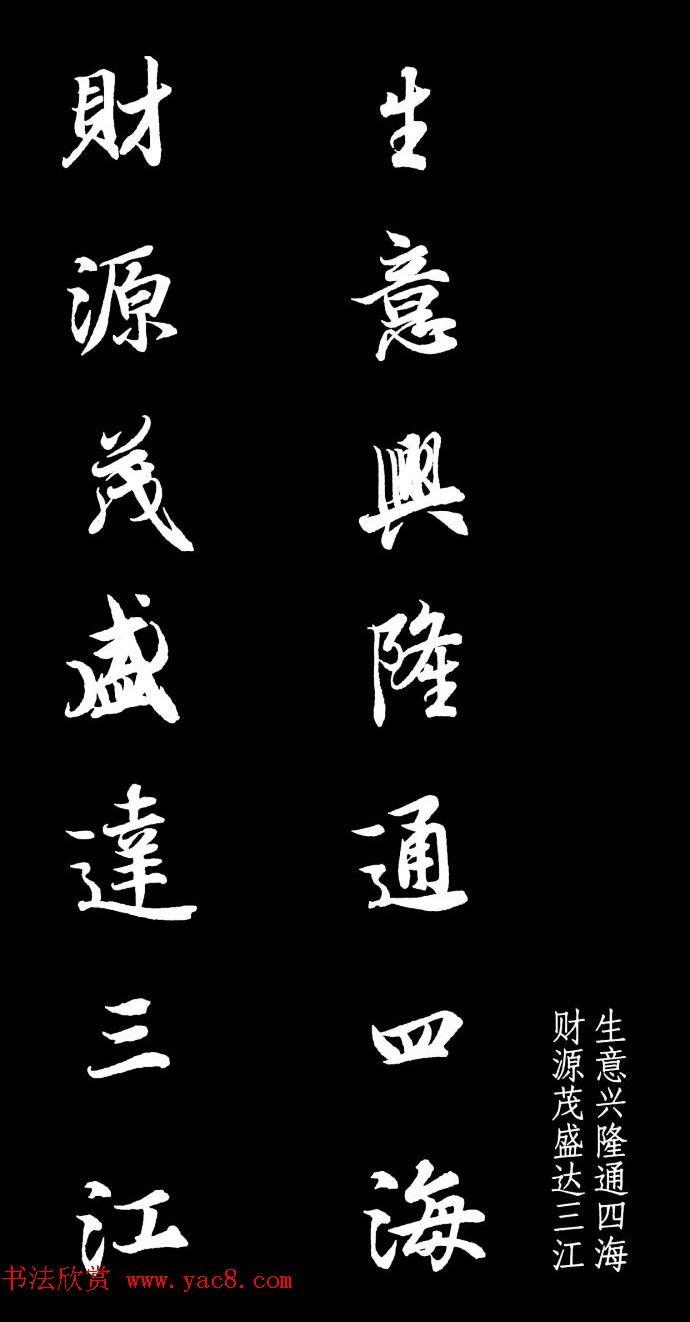 生意興隆通四海
財源茂盛達三江
生意兴隆通四海
财源茂盛达三江
书法欣赏 www.yac8.com